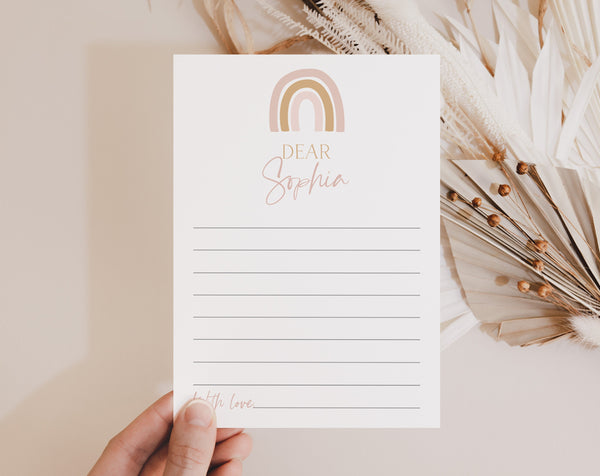 DEAR
Sophia
With love